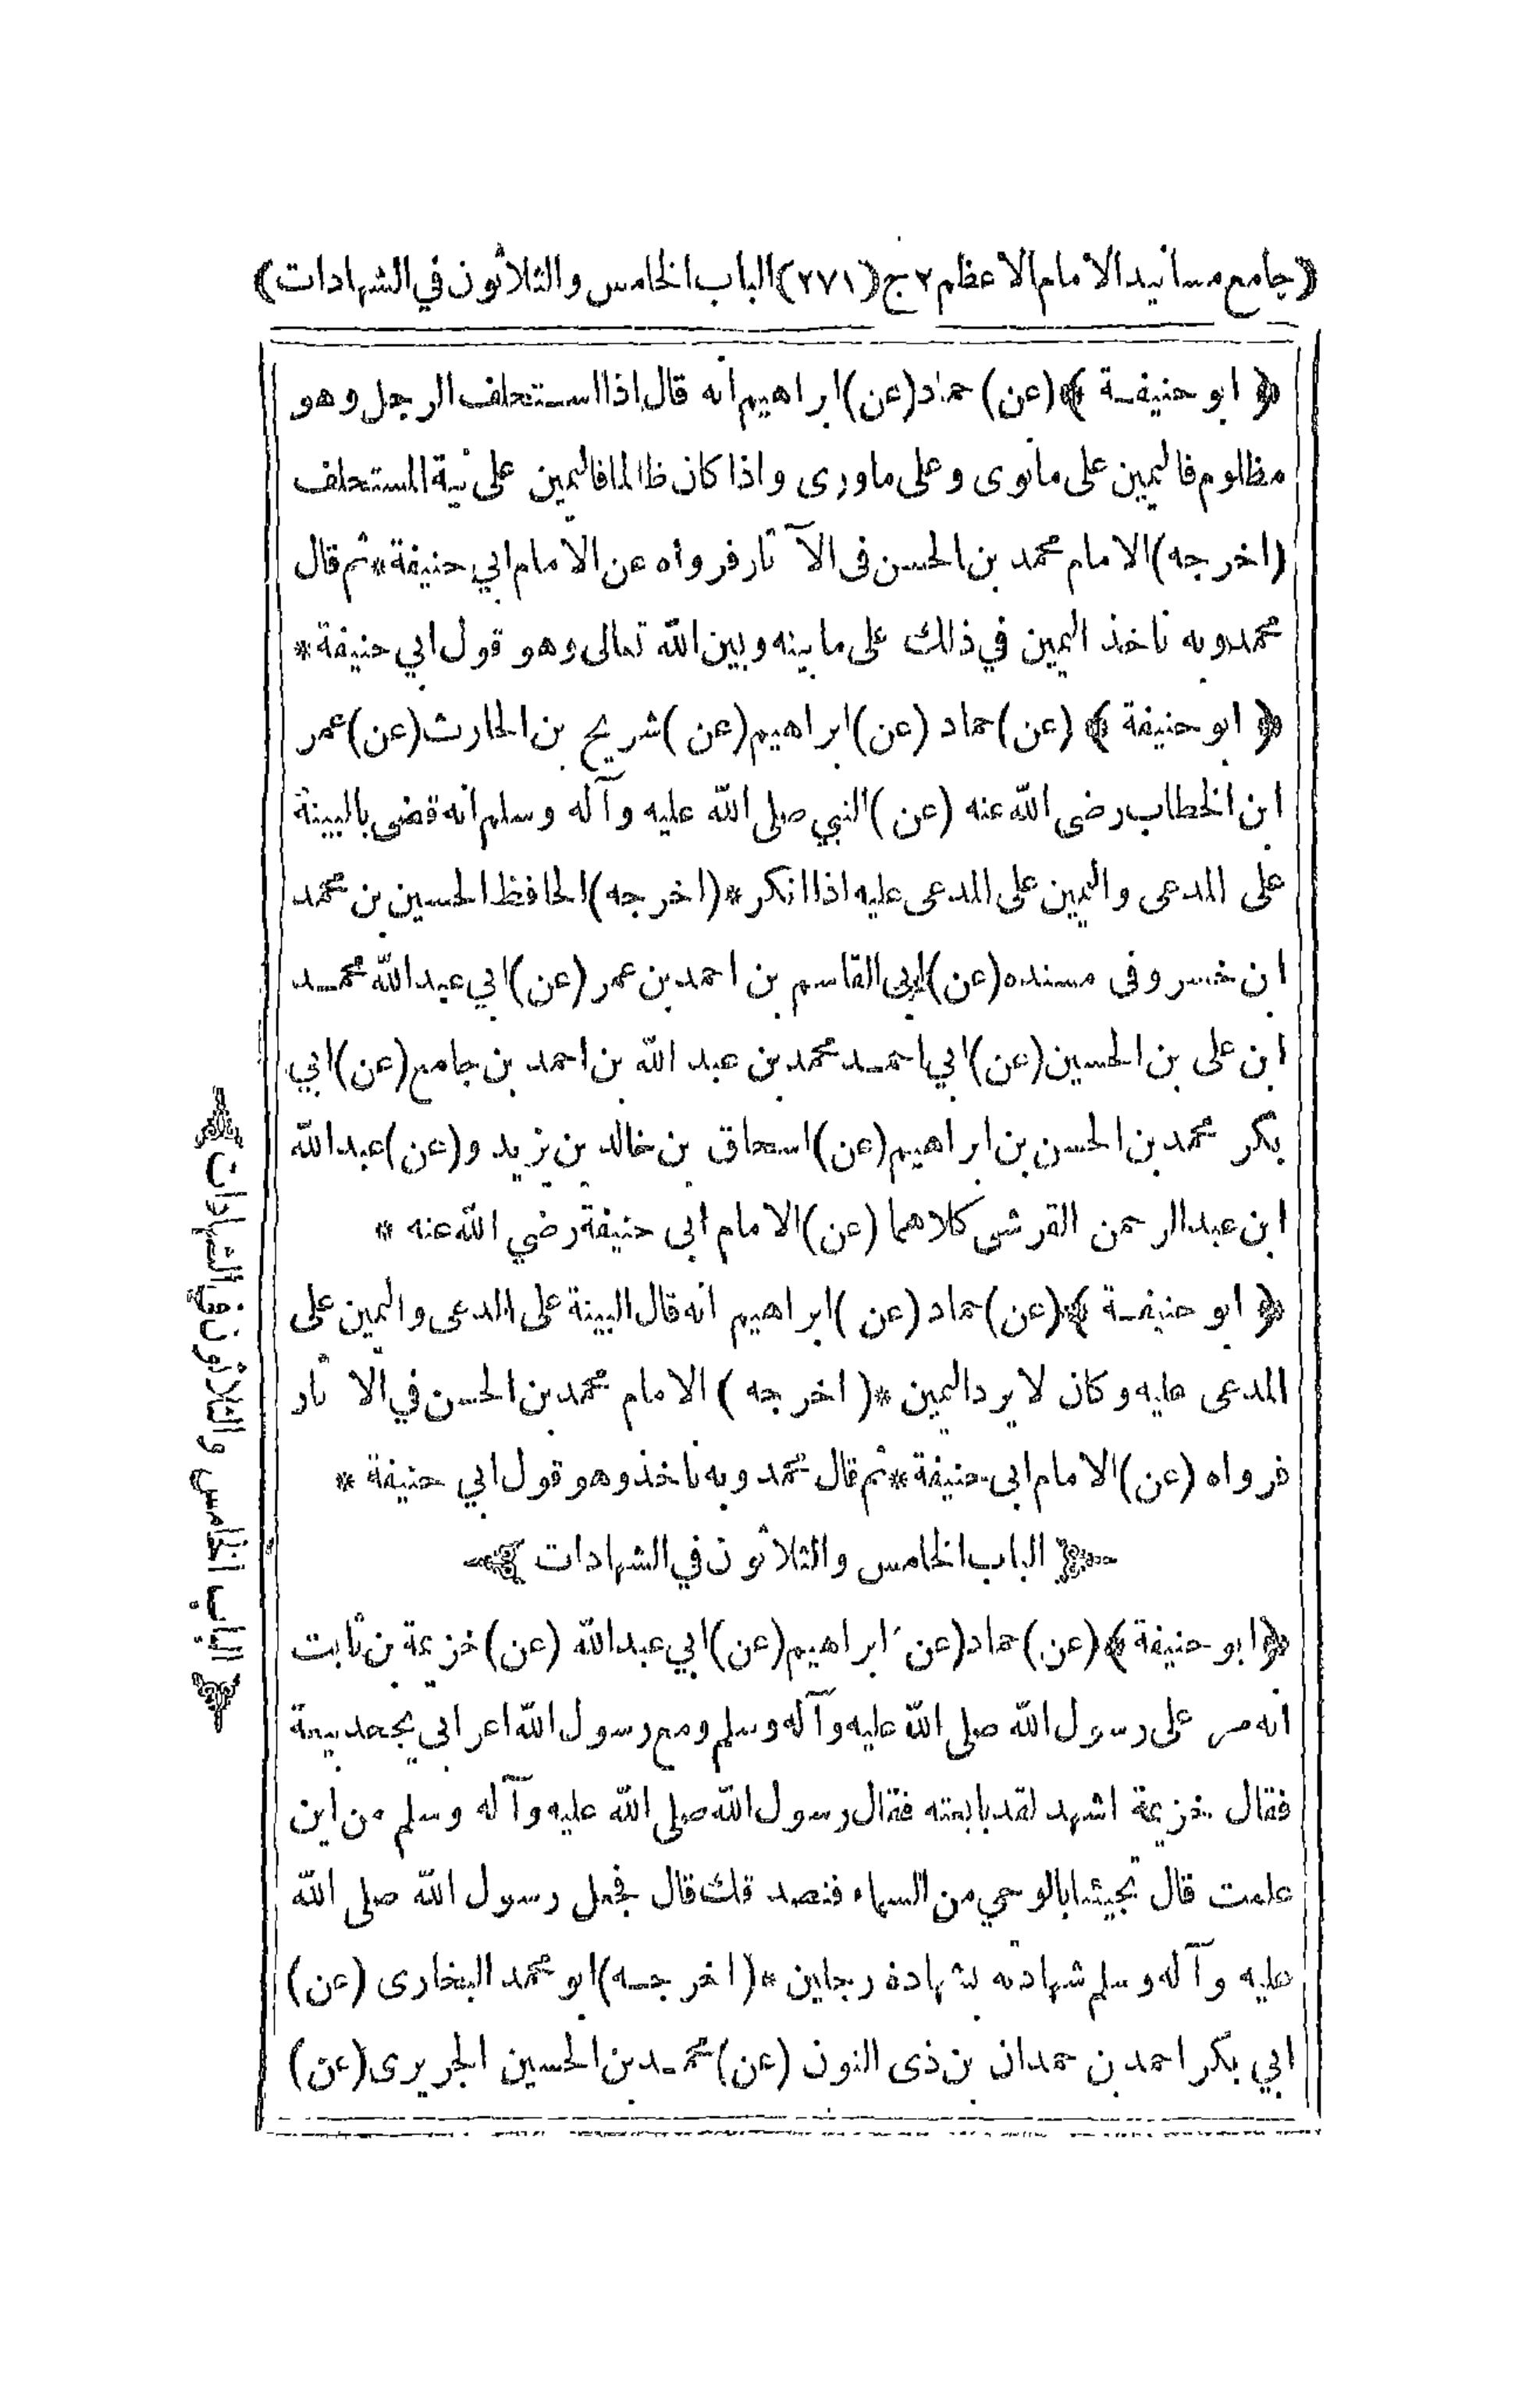 ﴿جامع مسانيد الامام الاعظم ج٢ (٢٧١) الباب الخامس والثلاثون في الشهادات﴾
﴿ ابو حنيفة ﴾ (عن) حماد (عن) ابراهيم انه قال اذا استحلف الرجل وهو
مظلوم فاليمين على مانوى وعلى ماورى واذا كان ظالما فاليمين على نية المستحلف
(اخرجه) الامام محمد بن الحسن فى الآثار فرواه عن الامام ابي حنيفة * ثم قال
محمد وبه ناخذ اليمين في ذلك على ما بينه وبين الله تعالى وهو قول ابي حنيفة *
﴿ ابو حنيفة ﴾ (عن) حماد (عن) ابراهيم (عن) شريح بن الحارث (عن) عمر
ابن الخطاب رضى الله عنه (عن) النبي صلى الله عليه وآله وسلم انه قضى بالبينة
على المدعى واليمين على المدعى عليه اذا انكر * (اخرجه) الحافظ الحسين بن محمد
ابن خسرو فى مسنده (عن) ابى القاسم بن احمد بن عمر (عن) ابي عبد الله محمد
ابن على بن الحسين (عن) ابي احمد محمد بن عبد الله بن احمد بن جامع (عن) ابي
بكر محمد بن الحسن بن ابراهيم (عن) اسحاق بن خالد بن يزيد و (عن) عبد الله
ابن عبد الرحمن القرشى كلاهما (عن) الامام ابى حنيفة رضي الله عنه *
﴿ ابو حنيفة ﴾ (عن) حماد (عن) ابراهيم انه قال البينة على المدعى واليمين على
المدعى عليه وكان لا يرد اليمين * (اخرجه) الامام محمد بن الحسن في الآثار
فرواه (عن) الامام ابى حنيفة * ثم قال محمد وبه ناخذ وهو قول ابي حنيفة *
﴿ الباب الخامس والثلاثون في الشهادات ﴾
﴿ابو حنيفة﴾ (عن) حماد (عن) ابراهيم (عن) ابي عبد الله (عن) خزيمة بن ثابت
انه مر على رسول الله صلى الله عليه وآله وسلم ومع رسول الله اعرابي يجحد بيعة
فقال خزيمة اشهد لقد بايعته فقال رسول الله صلى الله عليه وآله وسلم من اين
علمت قال تجيئنا بالوحي من السماء فنصدقك قال فجعل رسول الله صلى الله
عليه وآله وسلم شهادته بشهادة رجلين * (اخرجه) ابو محمد البخارى (عن)
ابي بكر احمد بن حمدان بن ذى النون (عن) محمد بن الحسين الجريرى (عن)
﴿ الباب الخامس والثلاثون في الشهادات ﴾